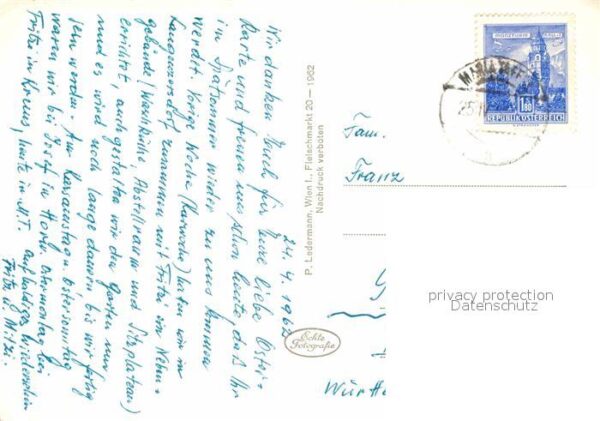 24.4.1962
Wir danken Euch für Eure liebe Oster-
karte und freuen uns schon heute daß Ihr
im Spätsommer wieder zu uns kommen
werdet. Vorige Woche (Karwoche) haben wir in
Langenzersdorf zusammen mit Fritz ein Neben-
gebäude (Waschküche, Abstellraum und Sitzplateau)
errichtet, auch gestalten wir den Garten neu
und es wird noch lange dauern bis wir fertig
sein werden. - Am Karsamstag u. Ostersonntag
waren wir bei Josef in Horn, Ostermontag bei
Fritz in Krems, heute in M.T. Auf baldiges Wiedersehen
Fritz u. Mitzi.
P. Ledermann, Wien I., Fleischmarkt 20 — 1962
Nachdruck verboten
Echte
Fotografie
1.80
REPUBLIK ÖSTERREICH
Fam.
Franz
Württ
privacy protection
Datenschutz